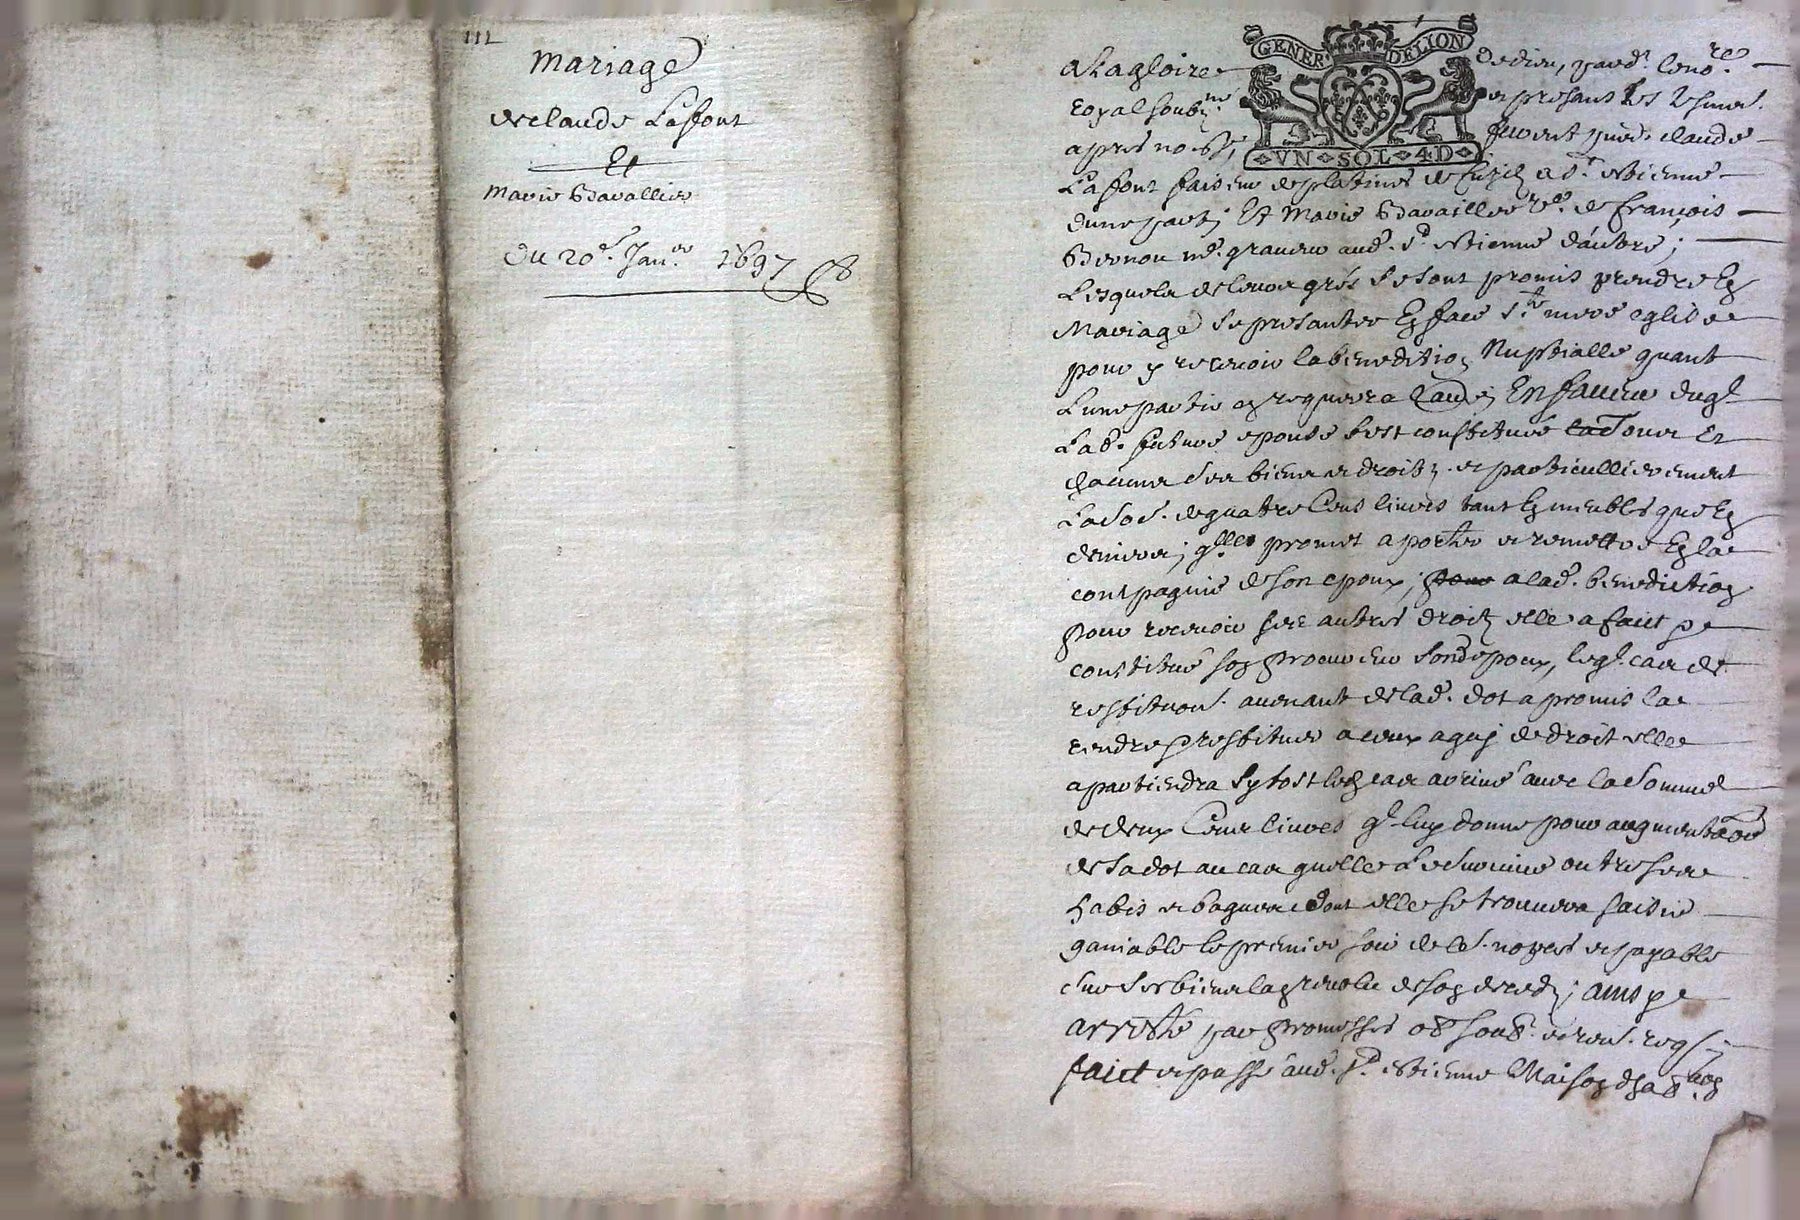 111
Mariage
de claude Laffont
Et
Marie Bavallier
du 20e. Janer 1697
GENER DELION
VN SOL 4D
A La gloire de dieu, pard.t le nore
royal soubz.né et presans les tesmoins
apres només, furent pnts. claude
Laffont faiseur de platines de fuzilz a St. estienne
dune part; Et Marie Bavaillier vve. de françois
Bernou me. graveur aud. St. estienne d'autre;
Lesquels de leurs grés se sont promis prendre En
Mariage se presanter En face ste mere eglise
pour y recevoir la benedition Nuptialle quant
L'une partie en requerra Lautre; En faveur duql.
Lad. future epouse sest constitué
chacuns ses biens et droitz. et particullierement
La so.e. de quatre Cens livres tant En meubles que En
deniers; qlle promet aporter et remettre En la
compagnie de son epoux, a lad. benediction
pour recevoir ses autres droitz elle a faict et
constitué son procureur sond. epoux, leql. cas de
restituon. avenant de lad. dot a promis la
rendre et restituer a ceux a quy de droit elle
apartiendra sytost led. cas arrivé avec la somme
de deux Cens livres ql. luy donne pour augmentaon
de sa dot au cas quelle Le survive outre ses
habis et bagues dont elle se trouvera saisie
ganiable le premier soir de leurs nopces et payable
sur ses biens la de son decedz; ainsy
arresté par promesses obson. soub. et ren. reqs.
faict et passé aud. St. estienne Maison dhabon